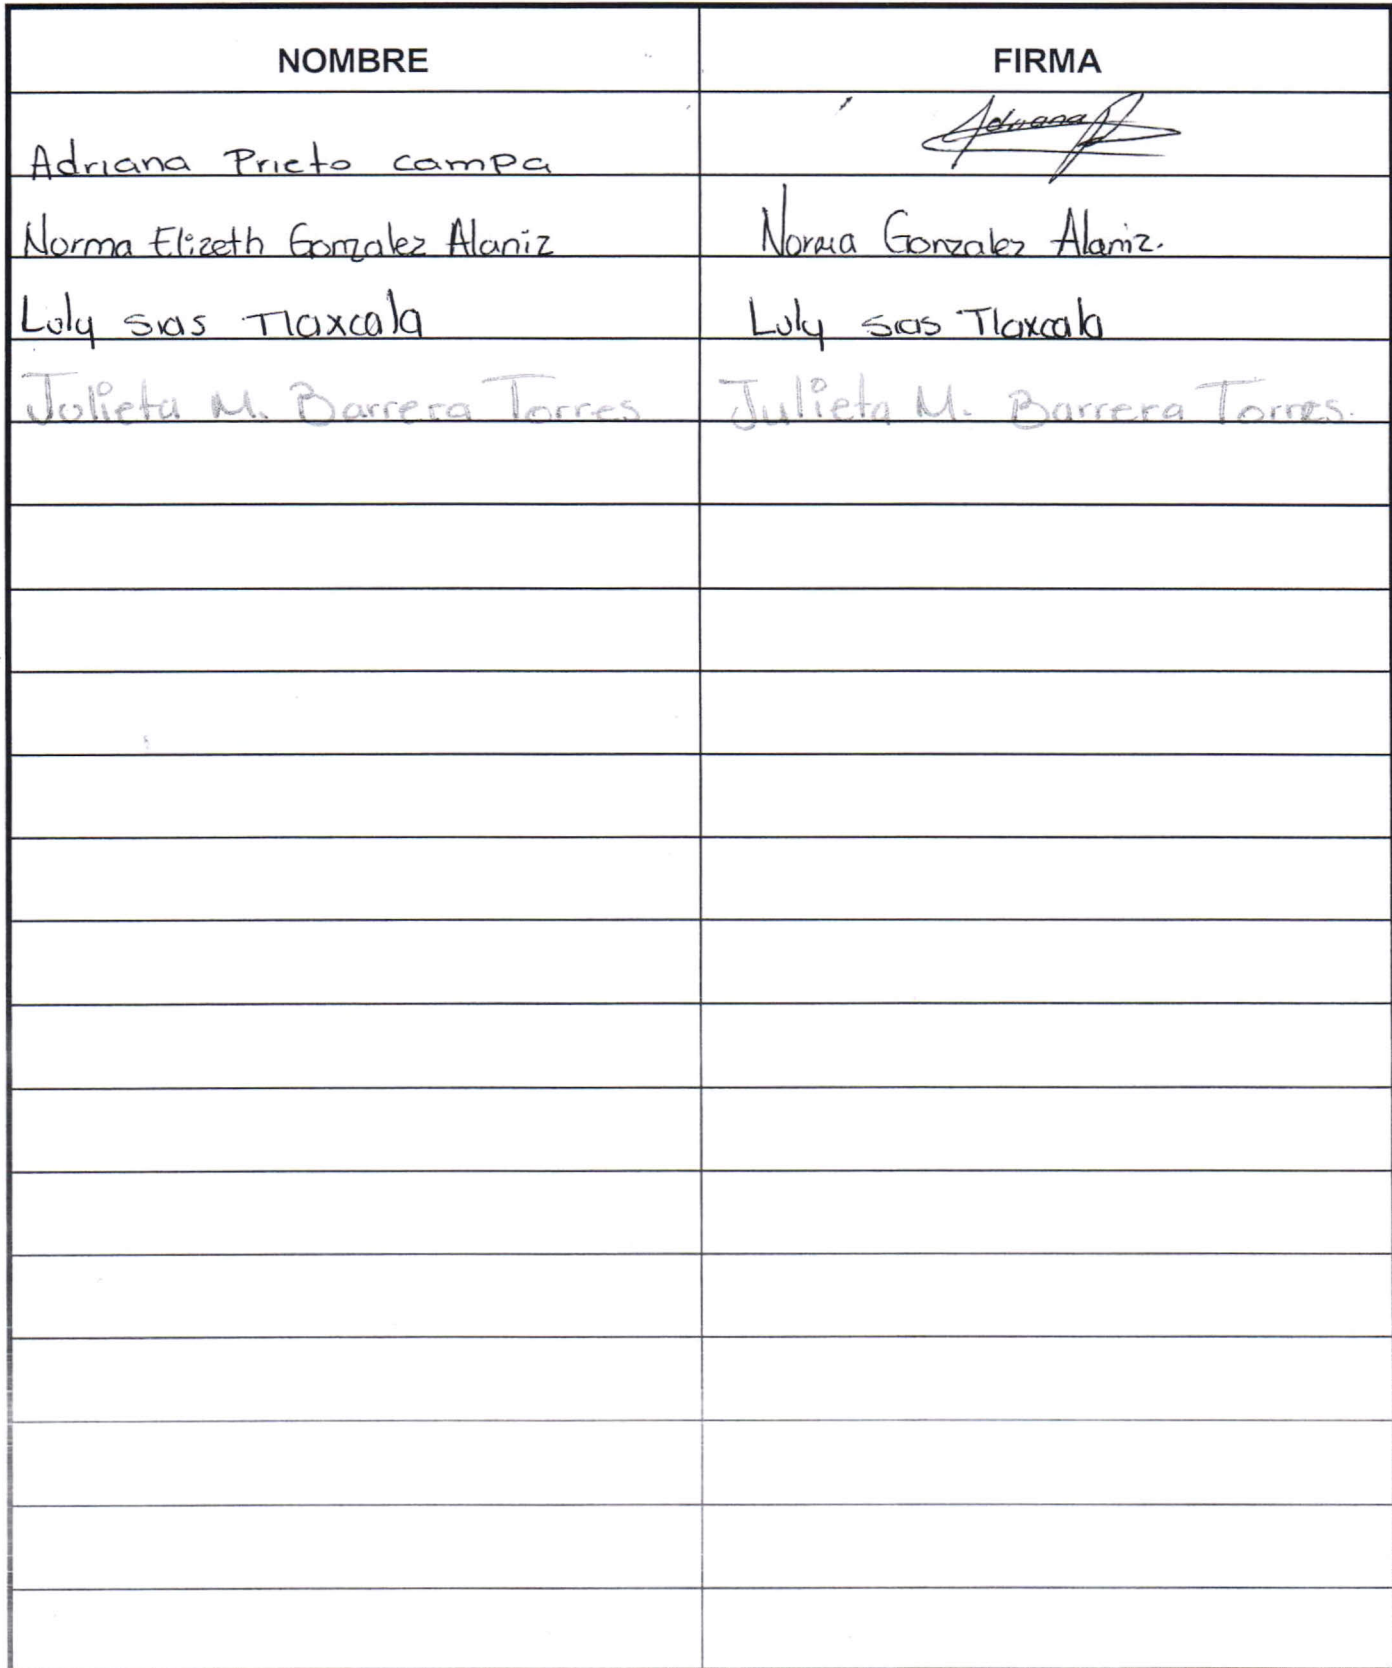 NOMBRE FIRMA
Adriana Prieto campa Adriana P
Norma Elizeth Gonzalez Alaniz Norma Gonzalez Alaniz.
Luly sias Tlaxcala Luly sias Tlaxcala
Julieta M. Barrera Torres Julieta M. Barrera Torres.